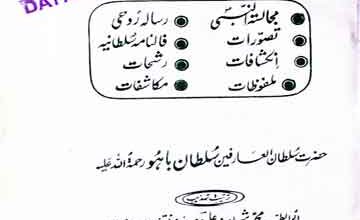 DAT
مجالسۃ النبیؐ ● رسالہ رُوحی ●
تصوّرات ● فالنامہ سُلطانیہ ●
انکشافات ● رشحات ●
ملفوظات ● مکاشفات ●
حضرت سُلطان العارفین سُلطان باھُو رحمۃ اللہ علیہ
ترتیب و تہذیب